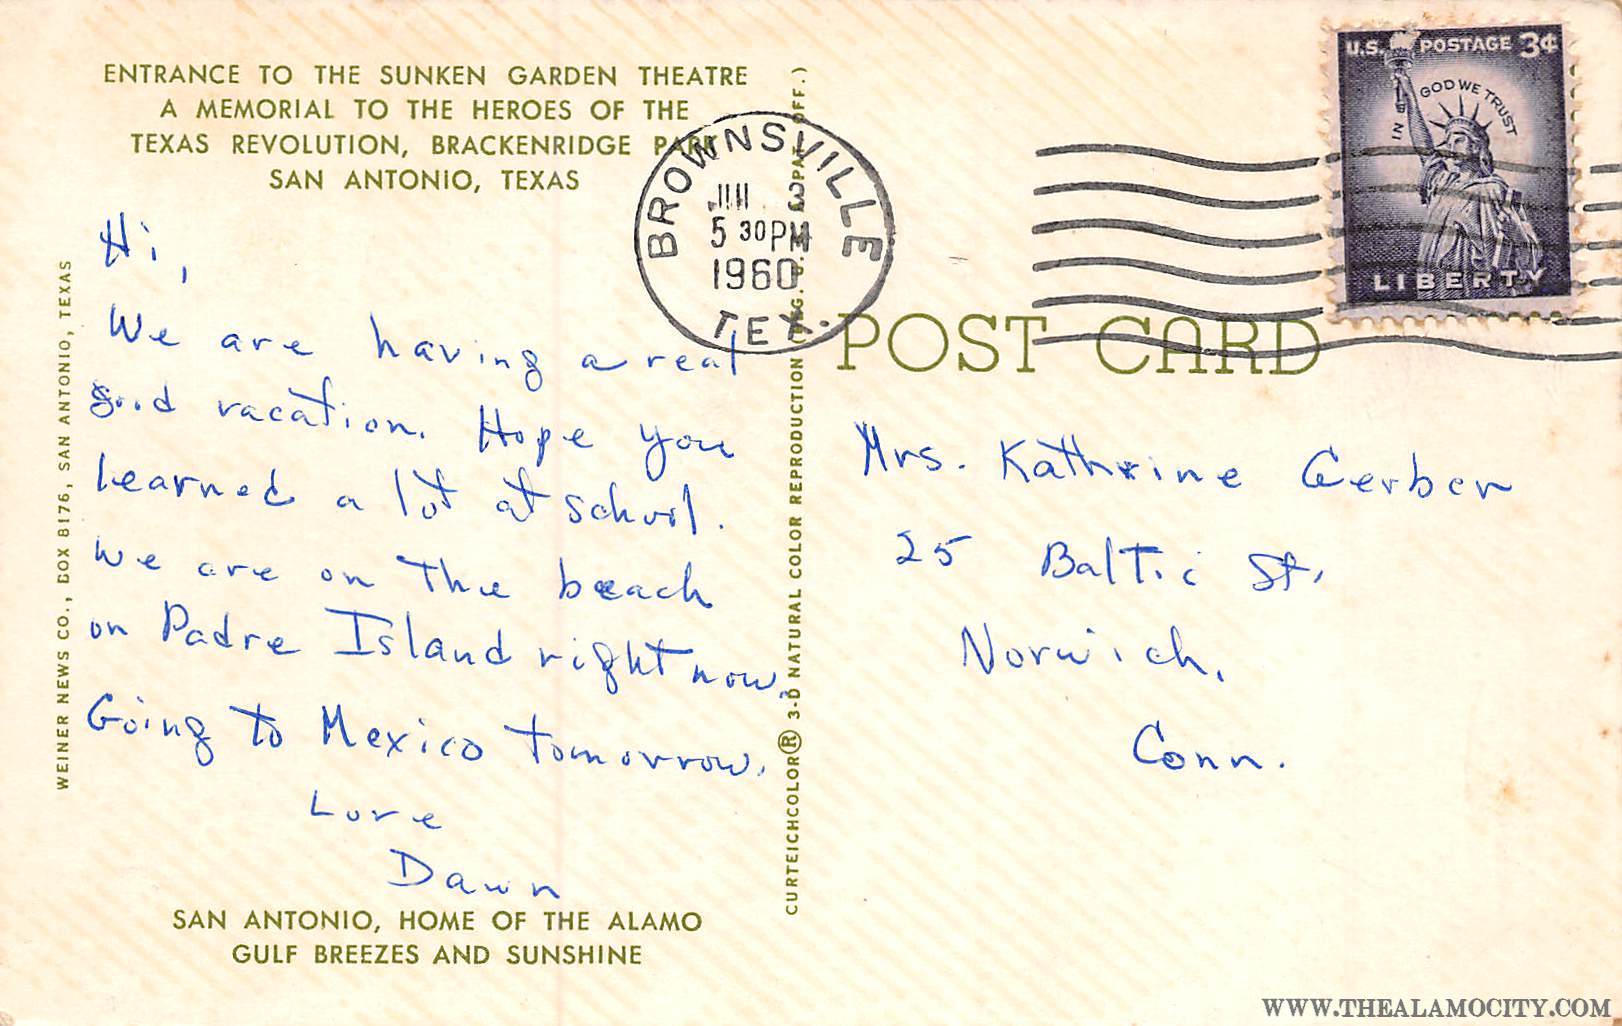 ENTRANCE TO THE SUNKEN GARDEN THEATRE
A MEMORIAL TO THE HEROES OF THE
TEXAS REVOLUTION, BRACKENRIDGE PARK
SAN ANTONIO, TEXAS
Hi,
We are having a real
good vacation. Hope you
learned a lot at school.
We are on the beach
on Padre Island right now.
Going to Mexico tomorrow.
Love
Dawn
SAN ANTONIO, HOME OF THE ALAMO
GULF BREEZES AND SUNSHINE
WEINER NEWS CO., BOX 8176, SAN ANTONIO, TEXAS
CURTEICHCOLOR® 3-D NATURAL COLOR REPRODUCTION U.S. PAT. OFF.)
BROWNSVILLE
5 30PM
1960
TEX.
U.S. POSTAGE 3¢
IN GOD WE TRUST
LIBERTY
POST CARD
Mrs. Kathrine Gerber
25 Baltic St.
Norwich,
Conn.
WWW.THEALAMOCITY.COM